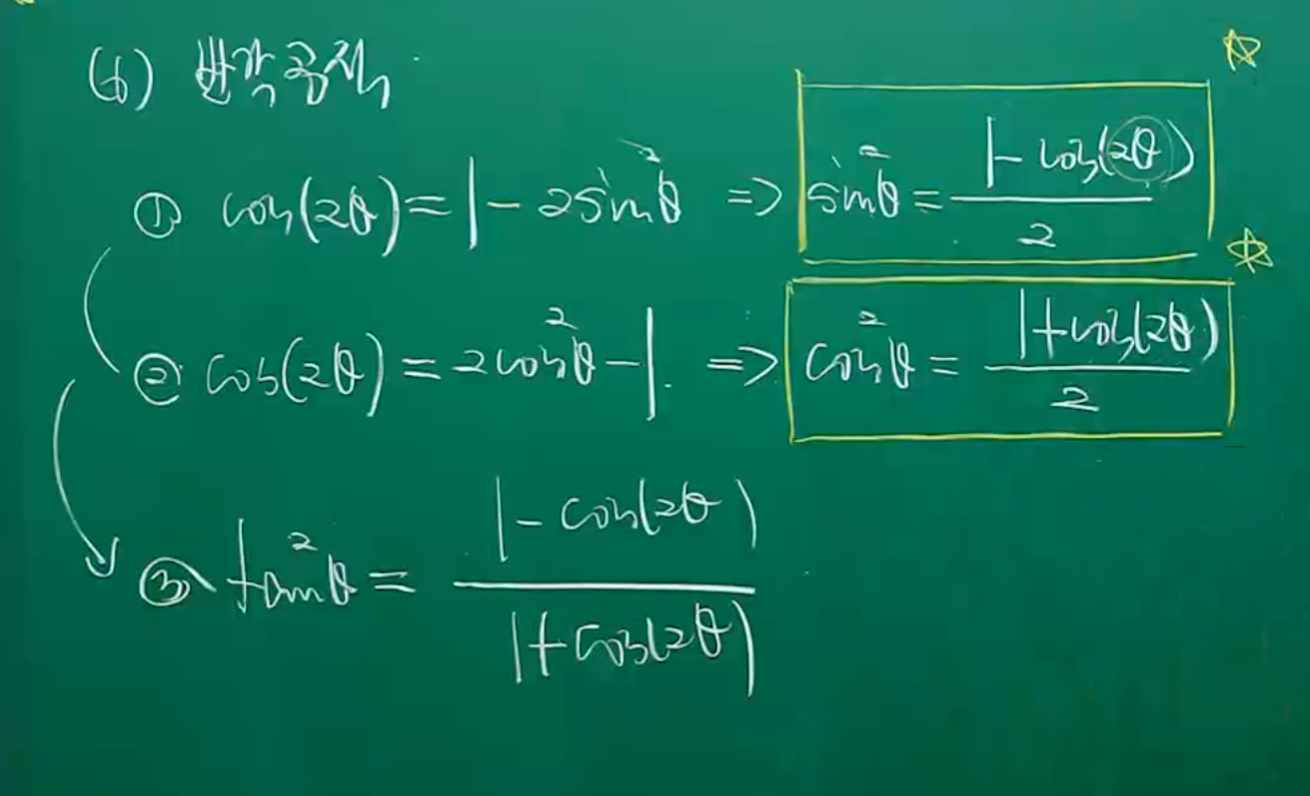 (6) 반각공식
① cos(2θ) = 1 - 2sin²θ ⇒ sin²θ = (1 - cos(2θ)) / 2
② cos(2θ) = 2cos²θ - 1. ⇒ cos²θ = (1 + cos(2θ)) / 2
③ tan²θ = (1 - cos(2θ)) / (1 + cos(2θ))